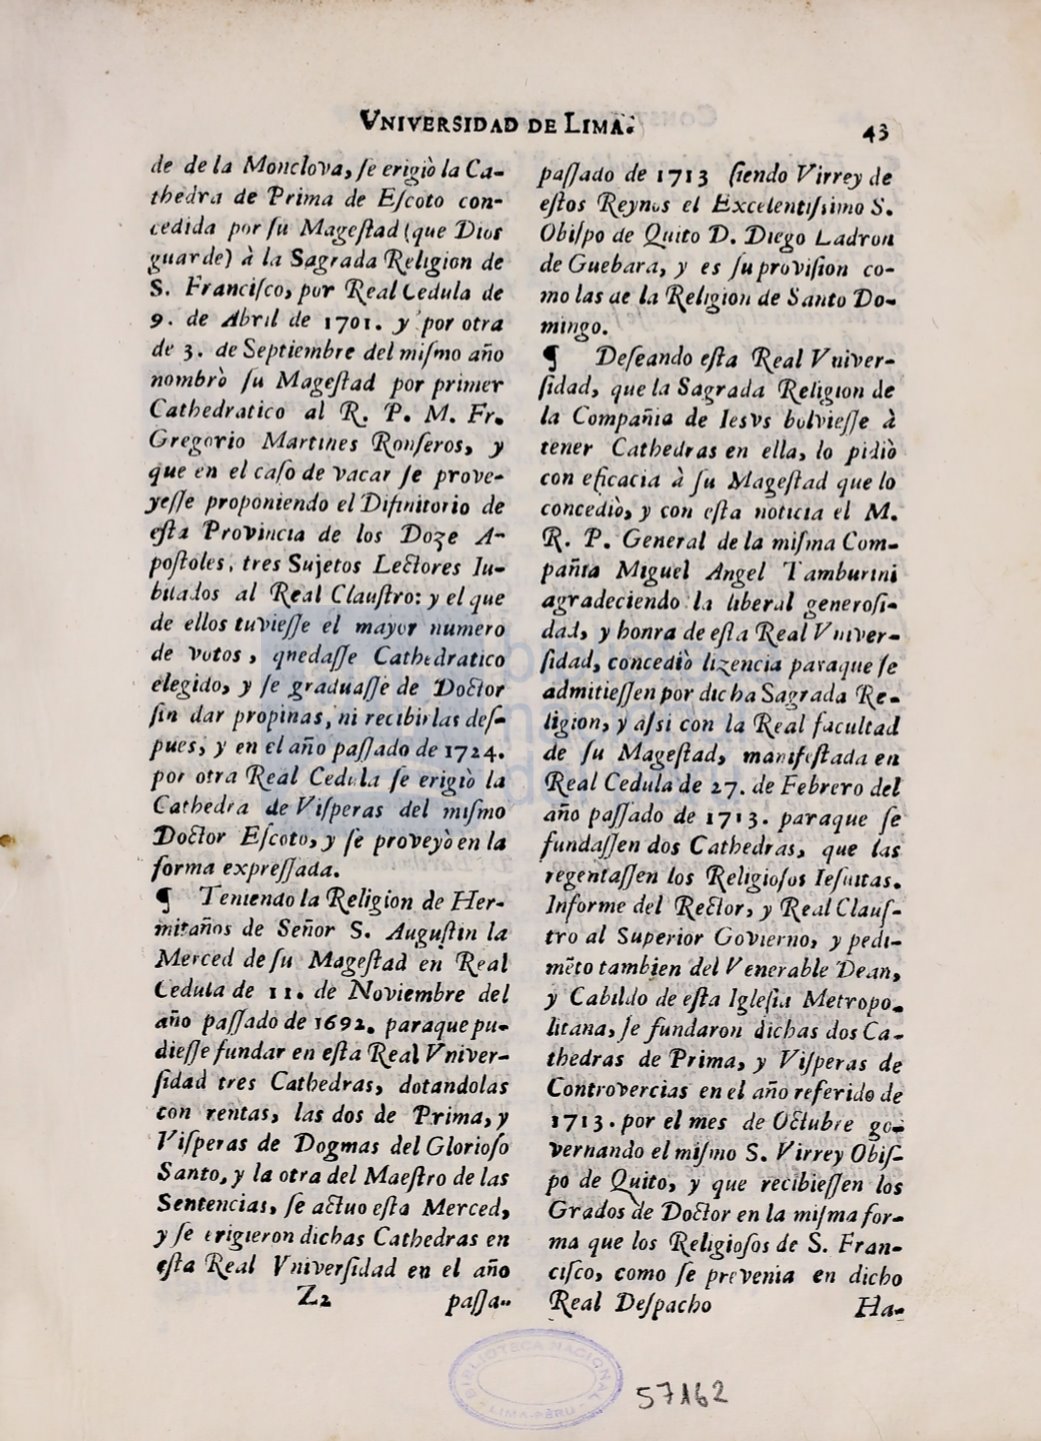 VNIVERSIDAD DE LIMA.
43
de de la Monclova, ſe erigiò la Ca-
thedra de Prima de Eſcoto con-
cedida por ſu Mageſtad (que Dios
guarde) à la Sagrada Religion de
S. Franciſco, por Real Cedula de
9. de Abril de 1701. y por otra
de 3. de Septiembre del miſmo año
nombrò ſu Mageſtad por primer
Cathedratico al R. P. M. Fr.
Gregorio Martines Ronſeros, y
que en el caſo de vacar ſe prove-
yeſſe proponiendo el Difinitorio de
eſta Provincia de los Doze A-
poſtoles, tres Sujetos Lectores Iu-
bilados al Real Clauſtro: y el que
de ellos tuvieſſe el mayor numero
de votos, qnedaſſe Cathedratico
elegido, y ſe graduaſſe de Doctor
ſin dar propinas, ni recibirlas deſ-
pues, y en el año paſſado de 1724.
por otra Real Cedula ſe erigiò la
Cathedra de Viſperas del miſmo
Doctor Eſcoto, y ſe proveyò en la
forma expreſſada.
¶ Teniendo la Religion de Her-
mitaños de Señor S. Auguſtin la
Merced de ſu Mageſtad en Real
Cedula de 11. de Noviembre del
año paſſado de 1692. paraque pu-
dieſſe fundar en eſta Real Vniver-
ſidad tres Cathedras, dotandolas
con rentas, las dos de Prima, y
Viſperas de Dogmas del Glorioſo
Santo, y la otra del Maeſtro de las
Sentencias, ſe actuo eſta Merced,
y ſe erigieron dichas Cathedras en
eſta Real Vniverſidad en el año
Z2 paſſa-
paſſado de 1713 ſiendo Virrey de
eſtos Reynos el Excelentiſsimo S.
Obiſpo de Quito D. Diego Ladron
de Guebara, y es ſu proviſion co-
mo las de la Religion de Santo Do-
mingo.
¶ Deſeando eſta Real Vniver-
ſidad, que la Sagrada Religion de
la Compañia de Iesvs bolvieſſe à
tener Cathedras en ella, lo pidiò
con eficacia à ſu Mageſtad que lo
concediò, y con eſta noticia el M.
R. P. General de la miſma Com-
pañia Miguel Angel Tamburini
agradeciendo la liberal generoſi-
dad, y honra de eſta Real Vniver-
ſidad, concediò lizencia paraque ſe
admitieſſen por dicha Sagrada Re-
ligion, y aſsi con la Real facultad
de ſu Mageſtad, manifeſtada en
Real Cedula de 27. de Febrero del
año paſſado de 1713. paraque ſe
fundaſſen dos Cathedras, que las
regentaſſen los Religioſos Ieſuitas.
Informe del Rector, y Real Clauſ-
tro al Superior Govierno, y pedi-
mẽto tambien del Venerable Dean,
y Cabildo de eſta Igleſia Metropo-
litana, ſe fundaron dichas dos Ca-
thedras de Prima, y Viſperas de
Controvercias en el año referido de
1713. por el mes de Octubre go-
vernando el miſmo S. Virrey Obiſ-
po de Quito, y que recibieſſen los
Grados de Doctor en la miſma for-
ma que los Religioſos de S. Fran-
ciſco, como ſe prevenia en dicho
Real Deſpacho Ha-
BIBLIOTECA NACIONAL
LIMA-PERU
57162